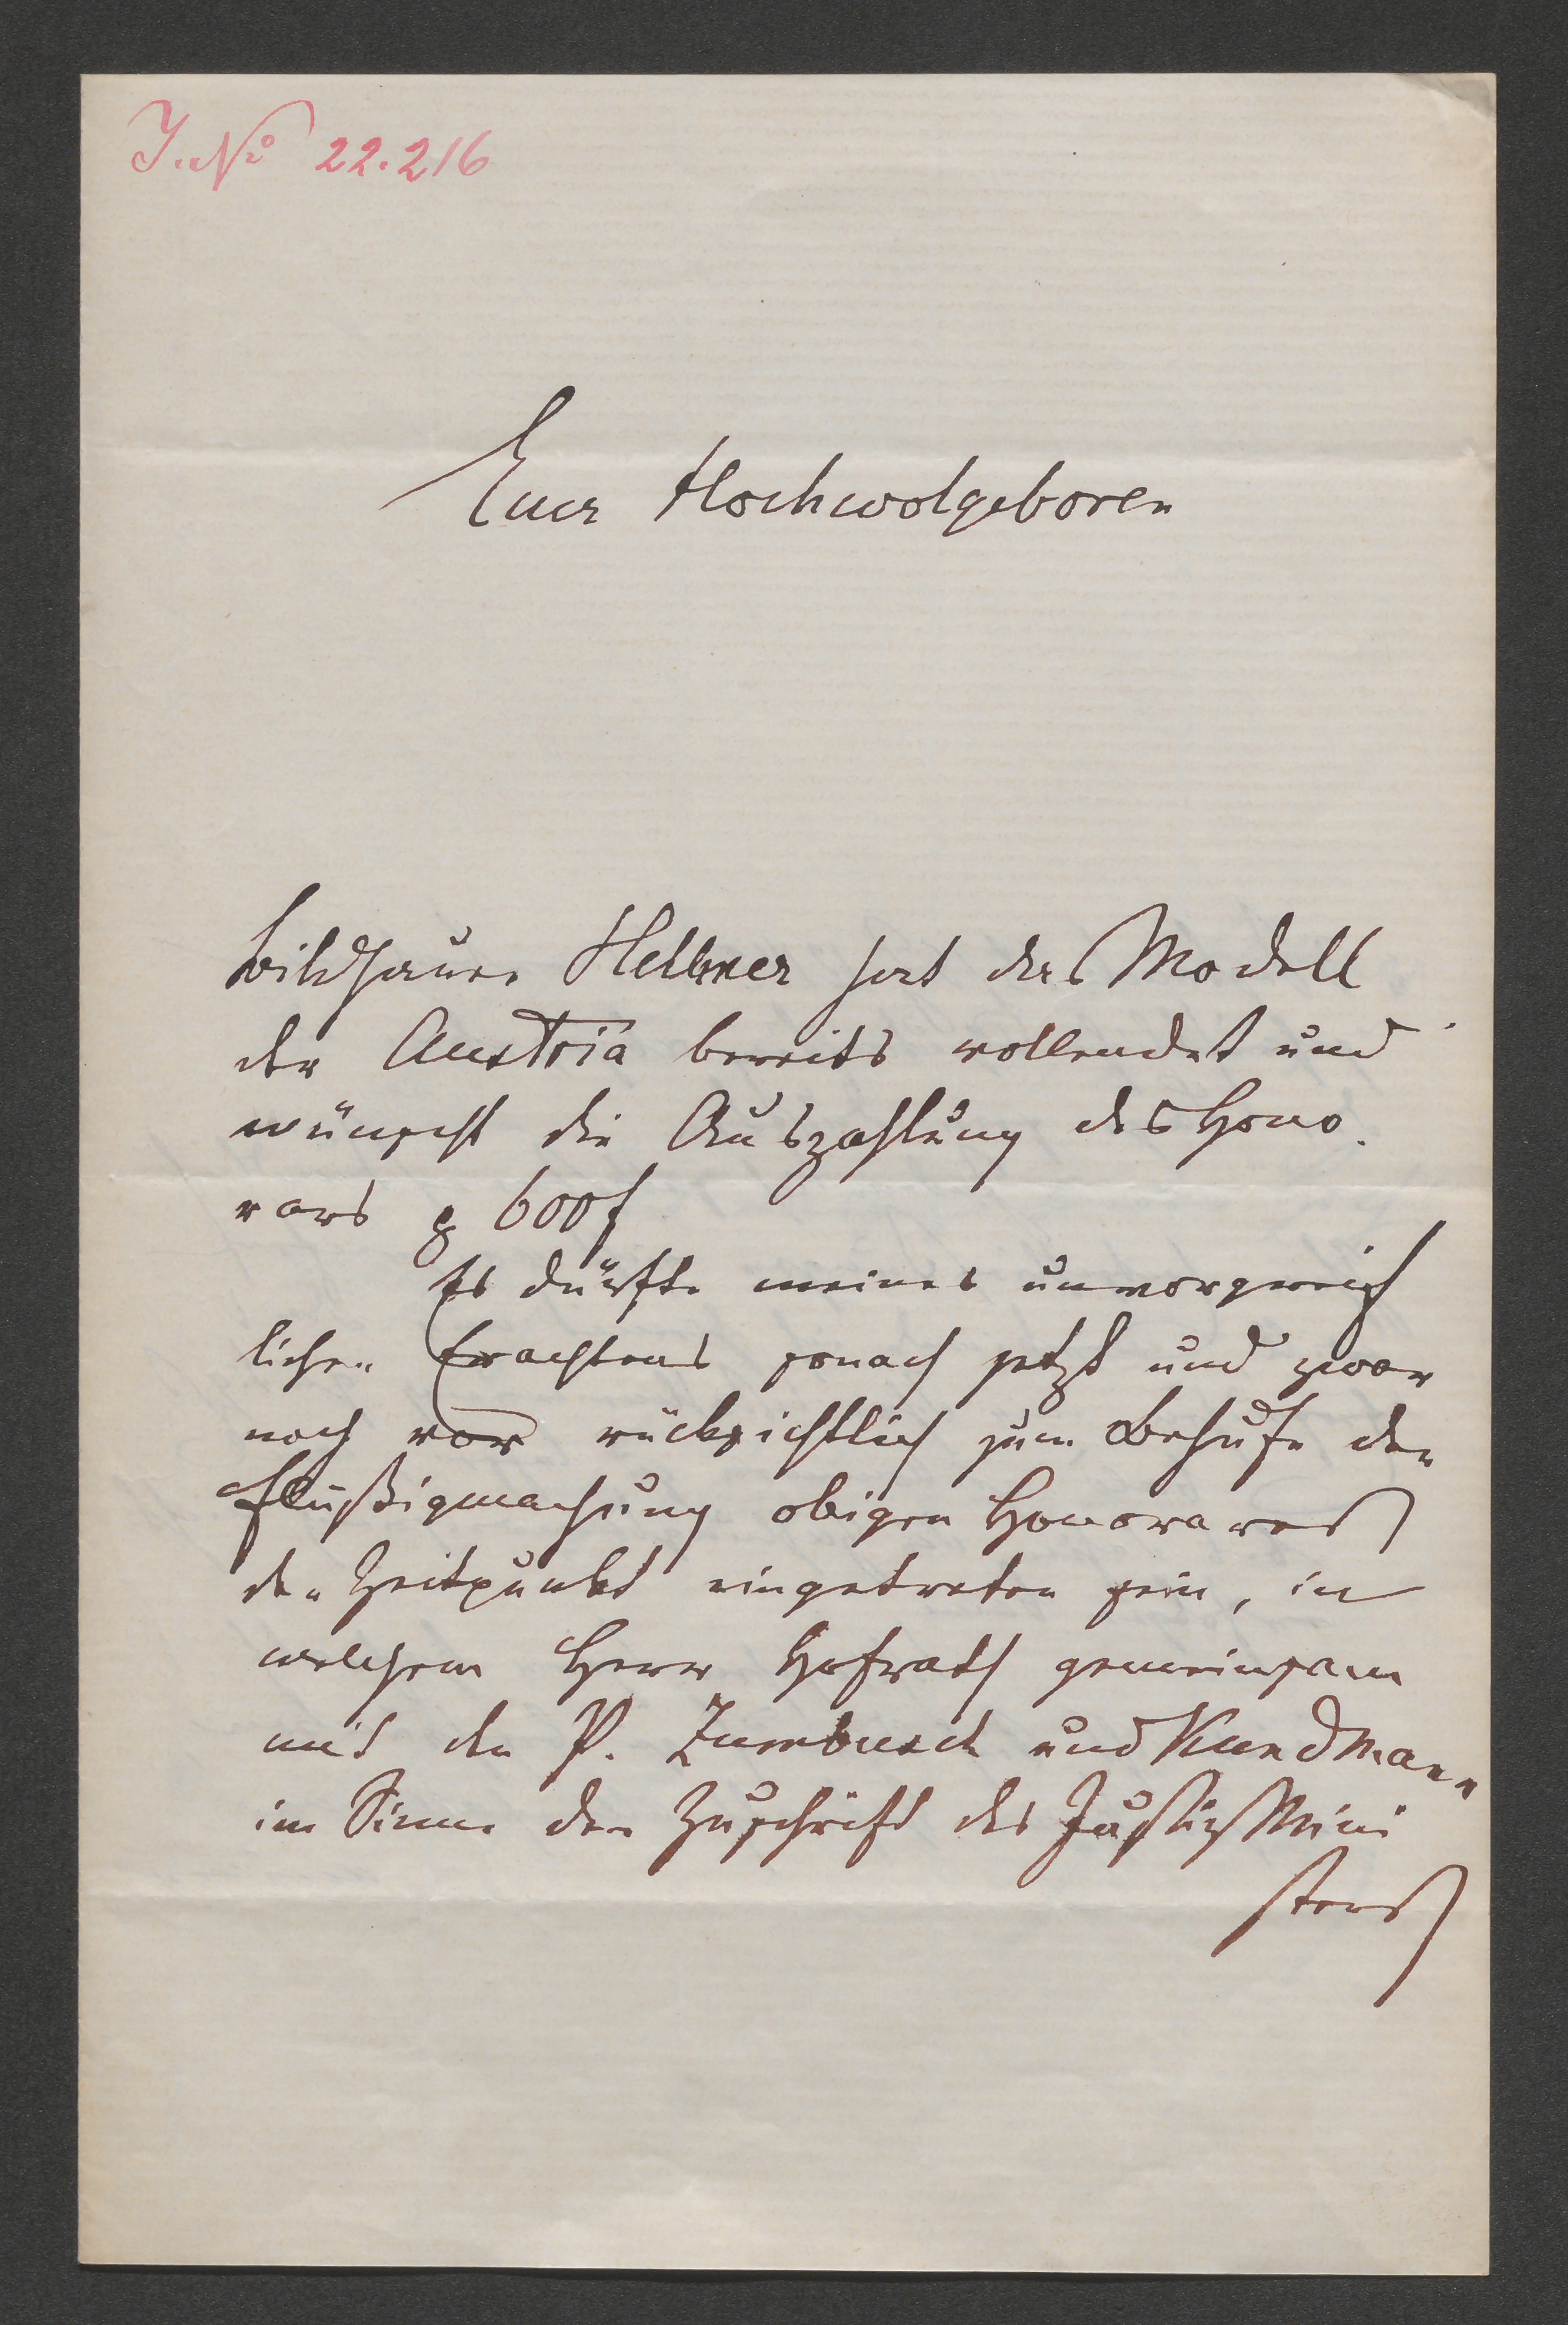 J. No 22.216
Euer Hochwolgeboren
Bildhauer Hellmer hat das Modell
der Austria bereits vollendet und
wünscht die Auszahlung des Hono
rars p 600 f
Es dürfte meines unvorgreif
lichen Erachtens sonach jetzt und zwar
noch vor rücksichtlich zum Behufe der
Flüßigmachung obigen Honorares
der Zeitpunkt eingetreten sein, in
welchem Herr Hofrath gemeinsam
mit den P. Zumbusch und Kundmann
im Sinne der Zuschrift des Justiz Mini
sters